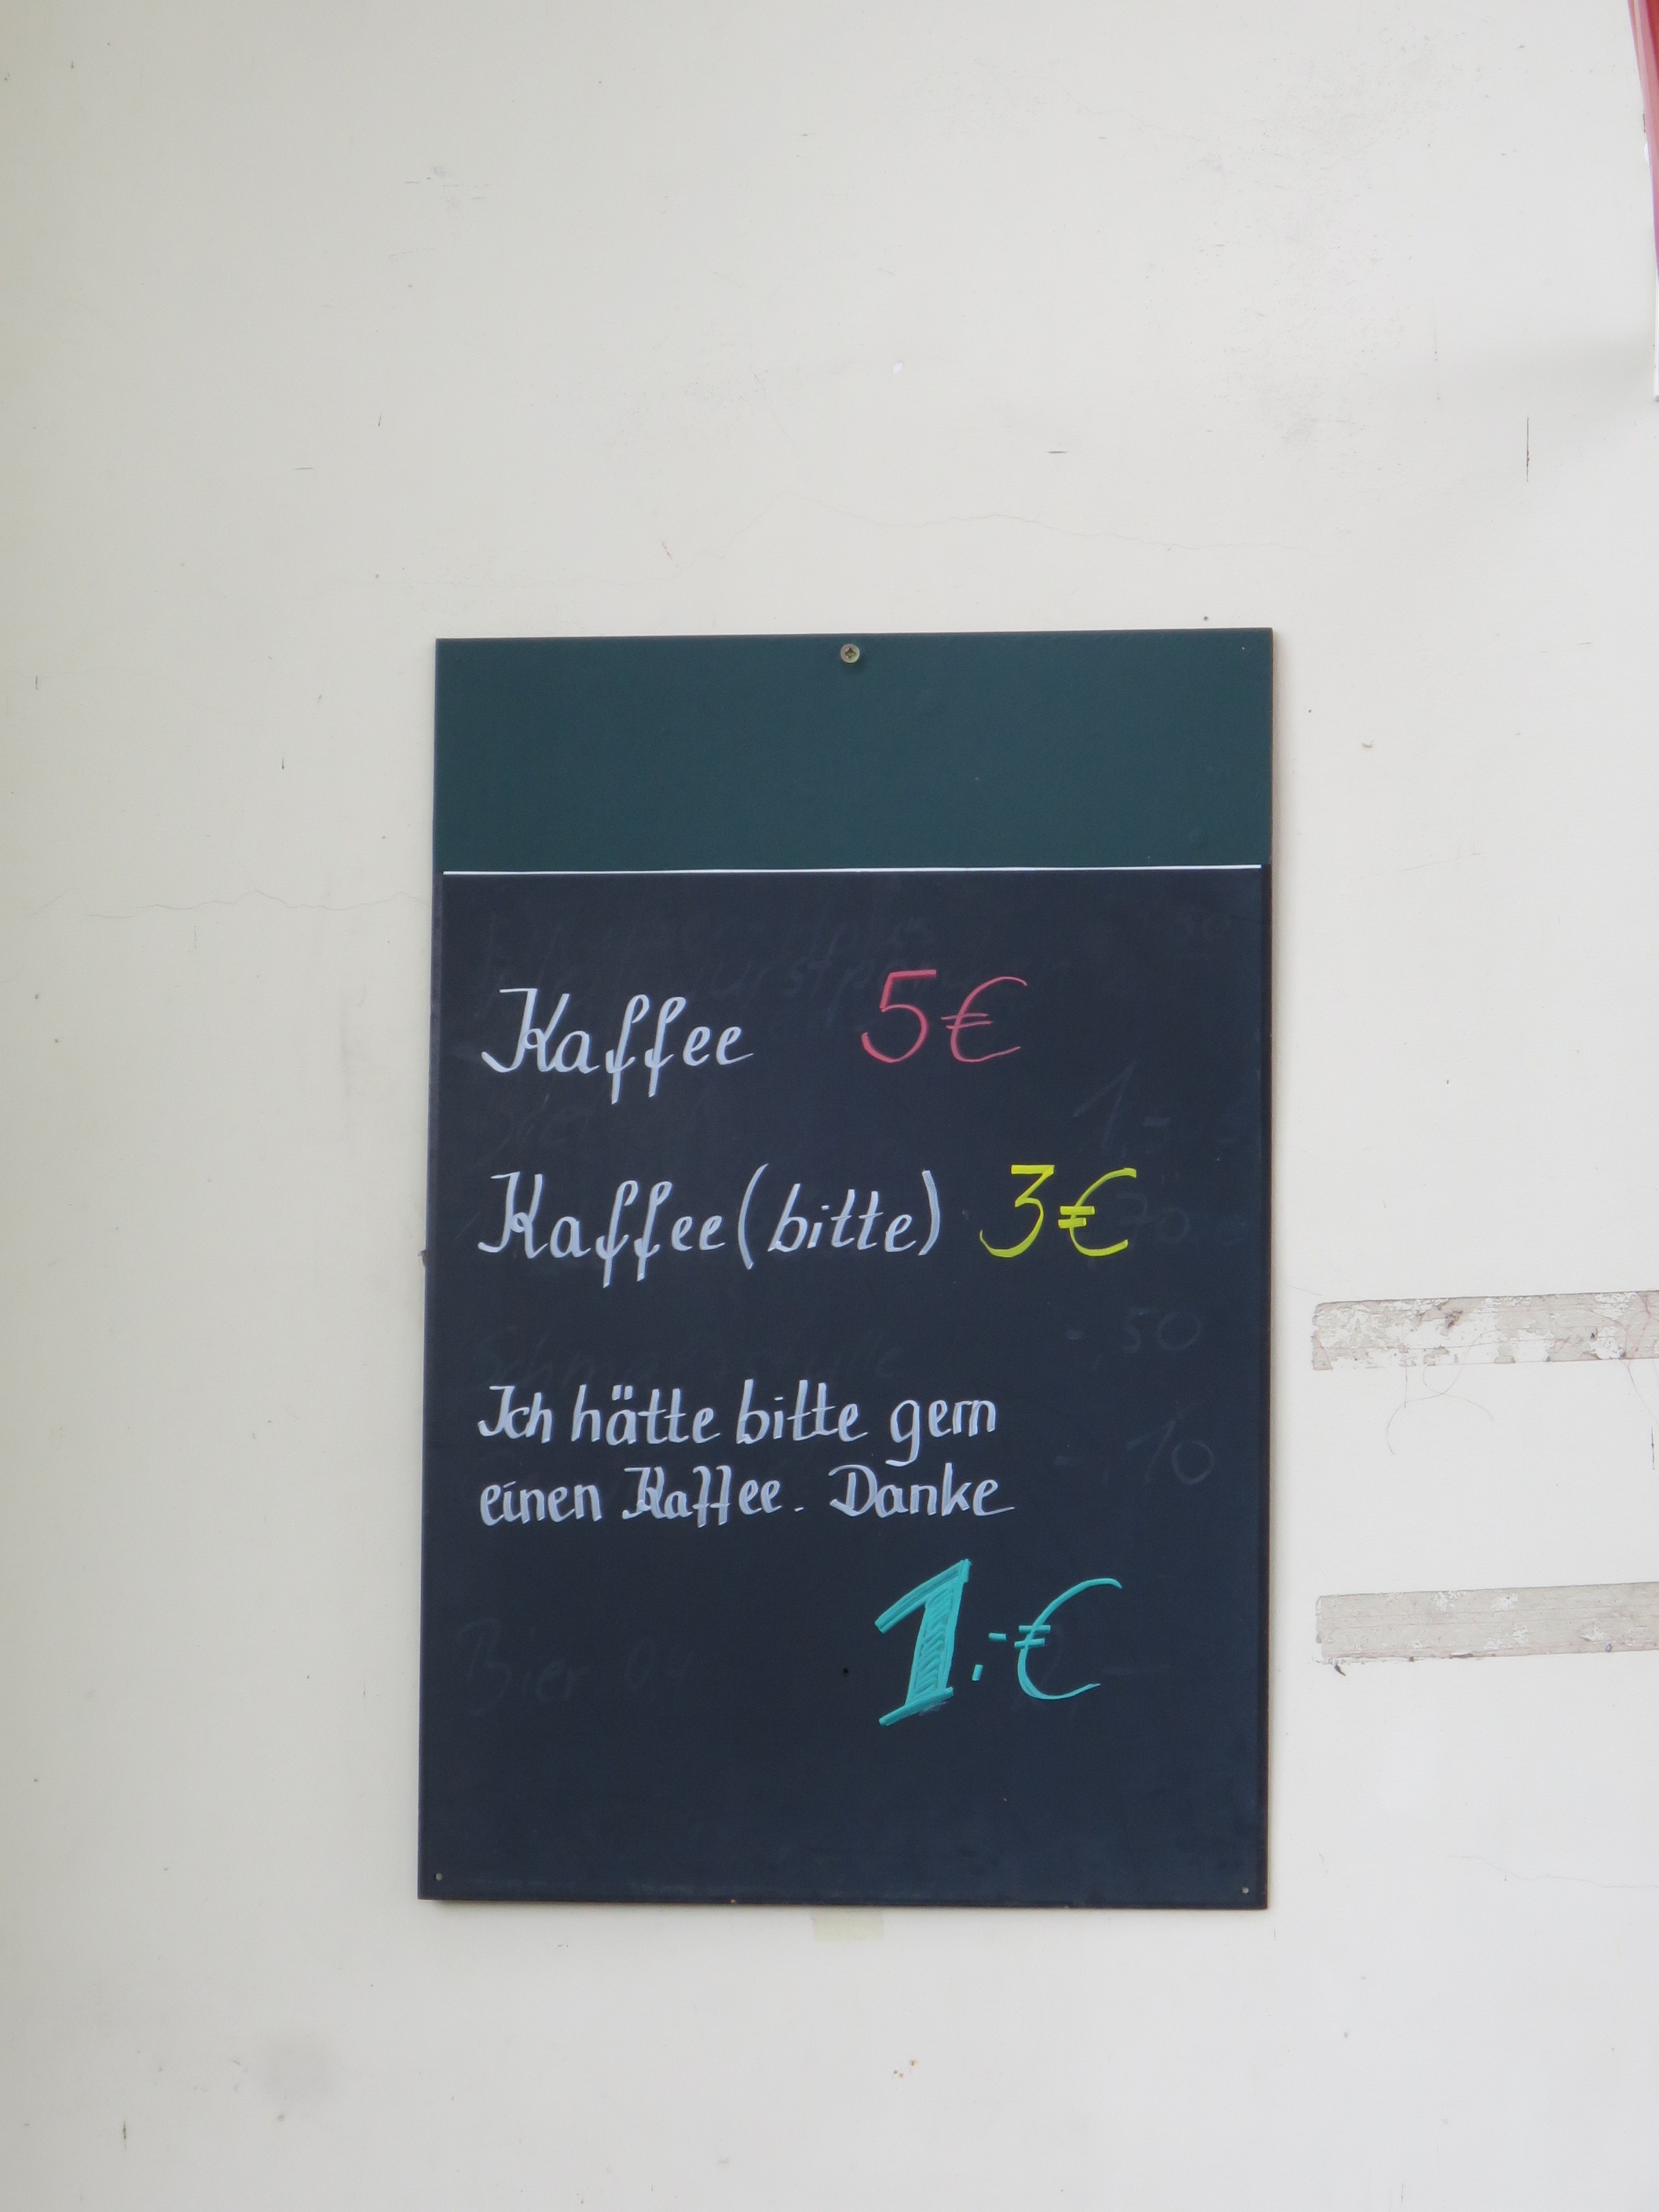 Kaffee 5€
Kaffee (bitte) 3€
Ich hätte bitte gern
einen Kaffee. Danke
1,-€